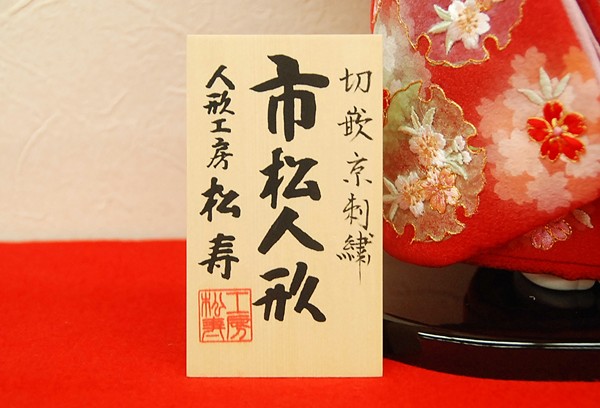 切嵌京刺繍
市松人形
人形工房松寿
工房松寿